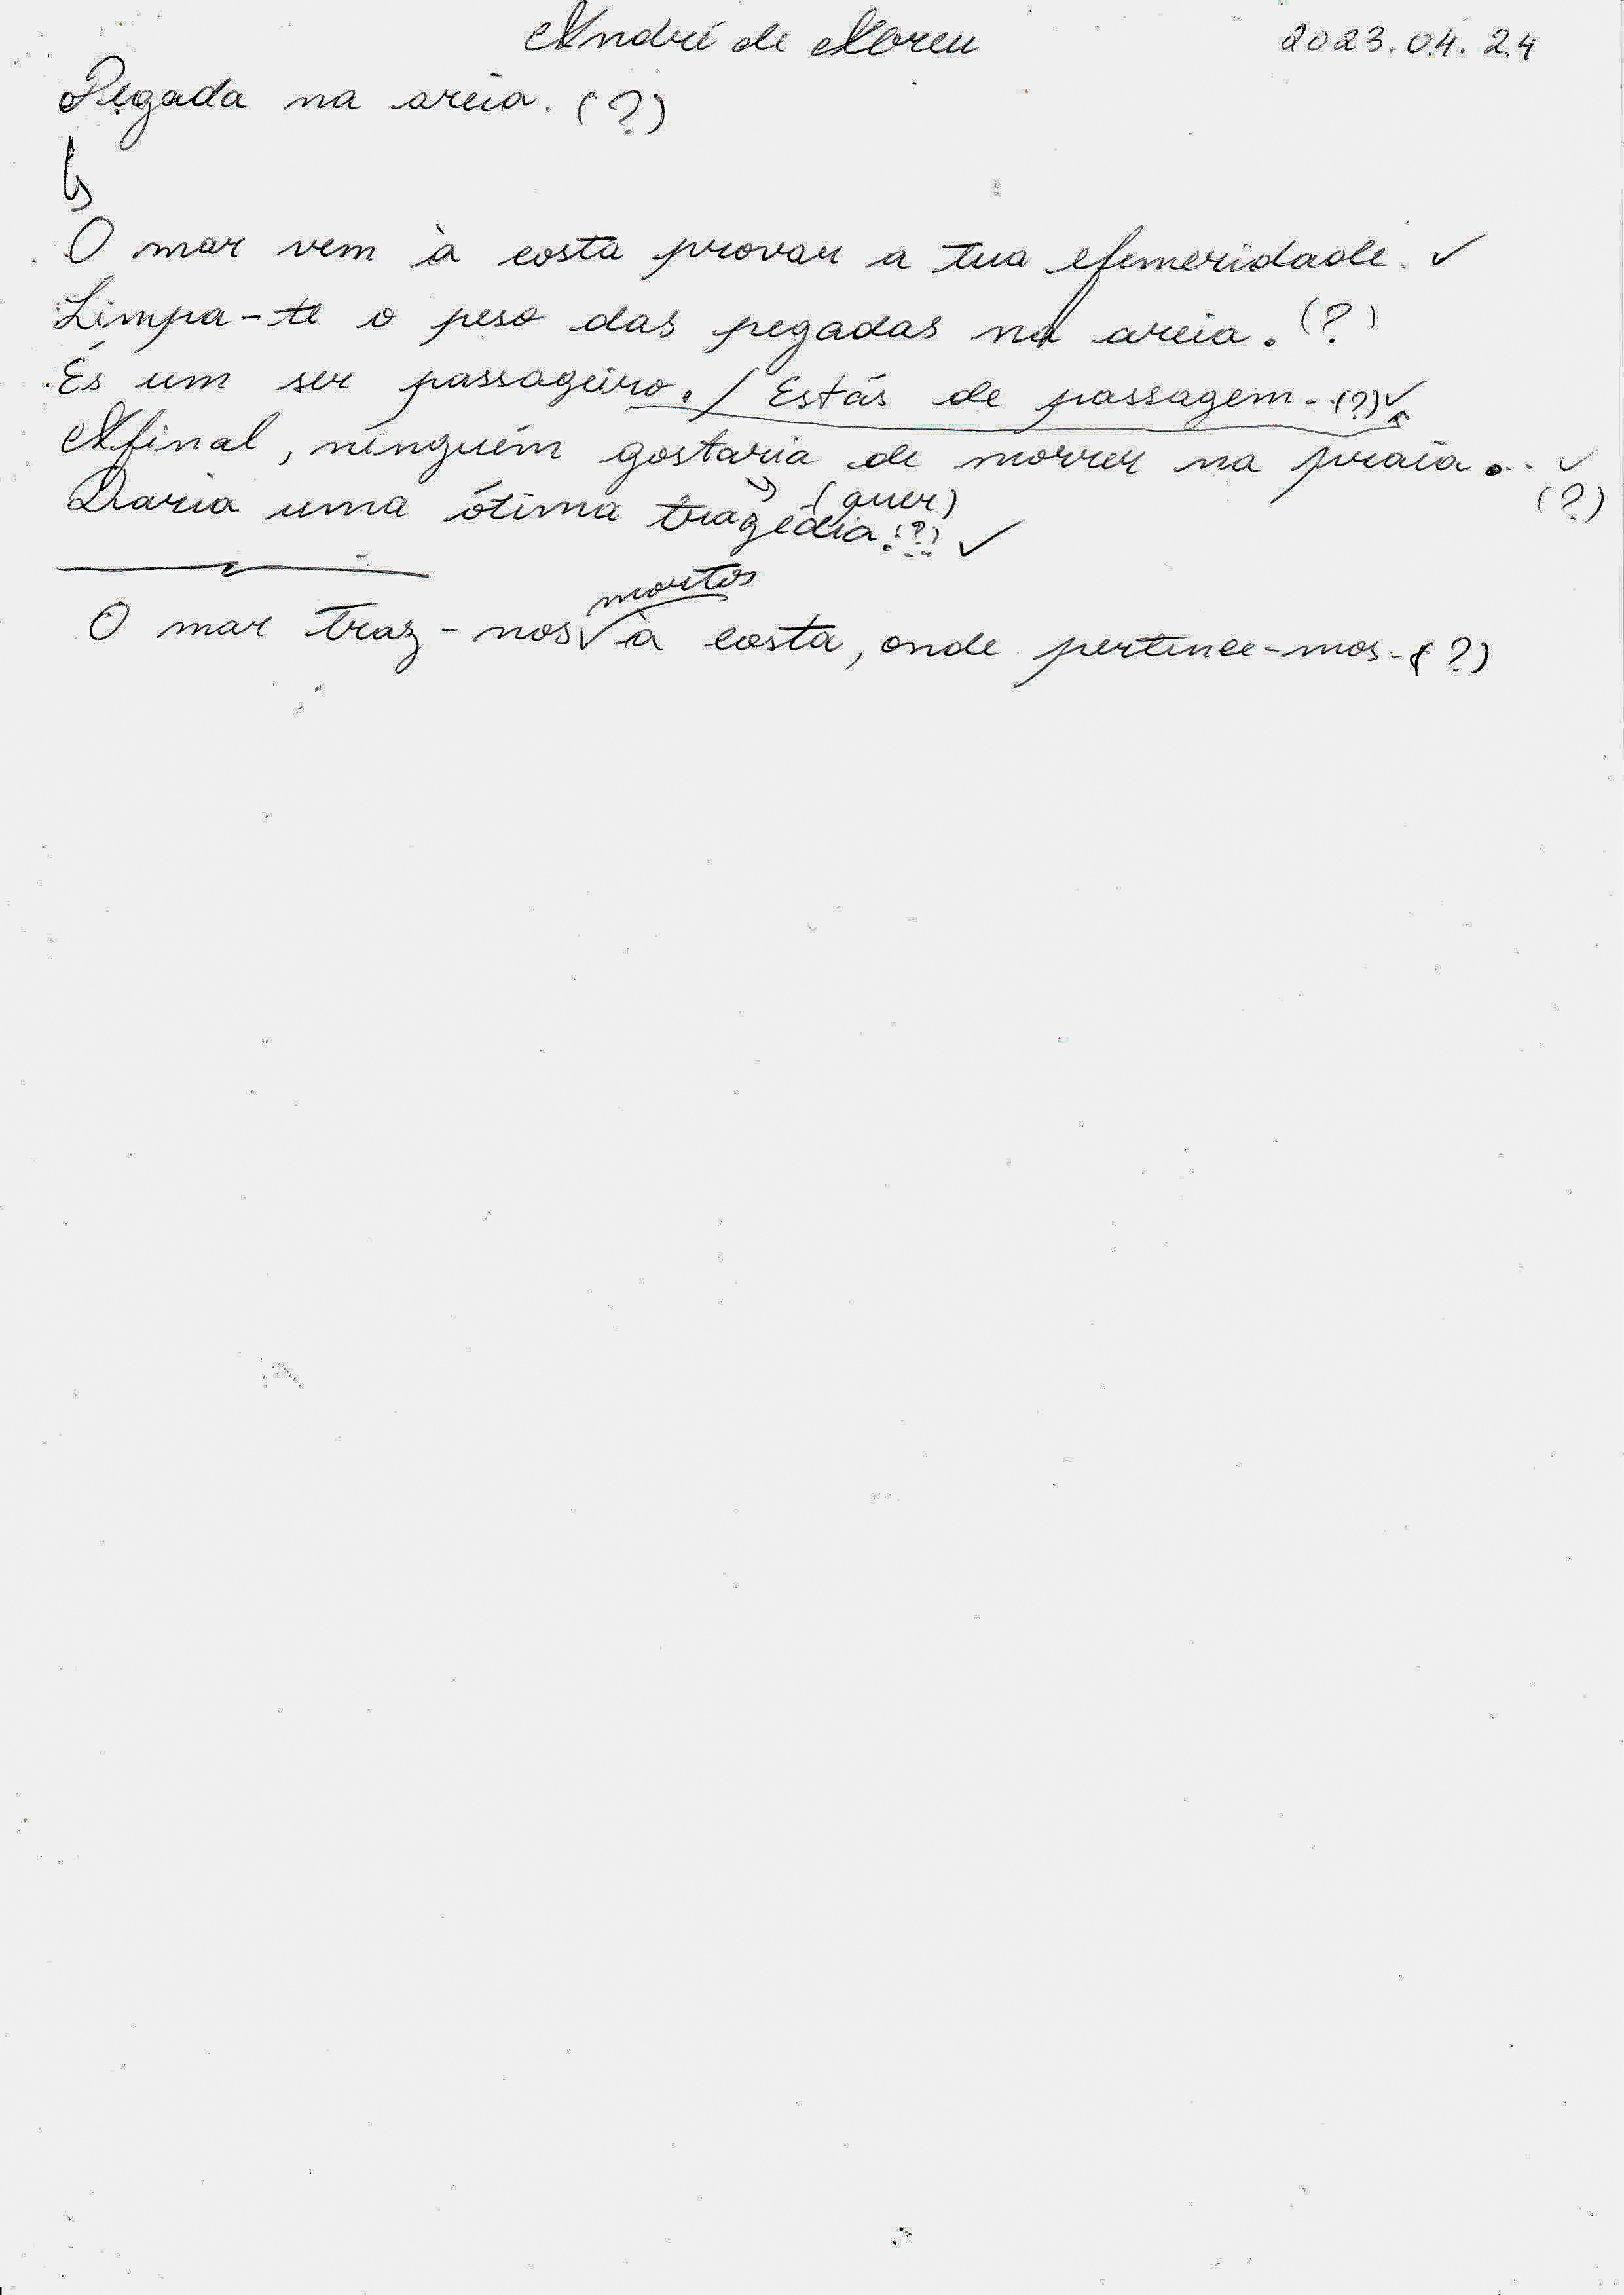 André de Abreu 2023.04.24
Pegada na areia. (?)
O mar vem à costa provar a tua efemeridade. ✓
Limpa-te o peso das pegadas na areia. (?)
És um ser passageiro. / Estás de passagem. (?) ✓
Afinal, ninguém gostaria de morrer na praia... ✓
(quer) (?)
Daria uma ótima tragédia. (?) ✓
mortos
O mar traz-nos ✓ à costa, onde pertence-mos. (?)